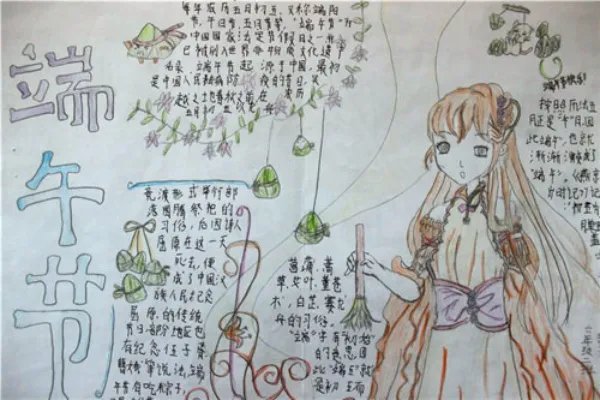 端午节
每年农历五月初五，又称端阳
节，午日节，五月节等，“端午节”为
中国国家法定节假日之一，并
已被列入世界非物质文化遗产
名录。端午节起源于中国，最初
是中国人民祛病防疫的节日，吴
越之地春秋之前在农历
五月初五
竞渡形式举行部
落图腾祭祀的
习俗，后因诗人
屈原在这一天
死去，便
成了中国汉
族人民纪念
屈原的传统
节日部分地区也
有纪念伍子胥
曹娥等说法，端
午节有吃粽子，
菖蒲、蒿
草、艾叶、薰苍
术、白芷，赛龙
舟的习俗。
“端”字有“初始”
的意思，因
此“端五”就
是初五而
端午节快乐！
按照历法五
月正是“午”月，因
此“端午”也就
渐渐演变成了
“端午”。《燕京
岁时记》记